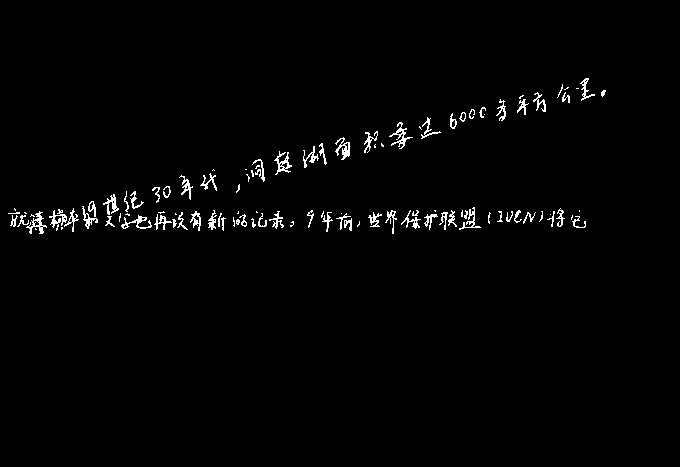 19世纪30年代,洞庭湖面积 6000多平方公里。
就 文字也再没有新的记录。9年前,世界保护联盟(IUCN)将它